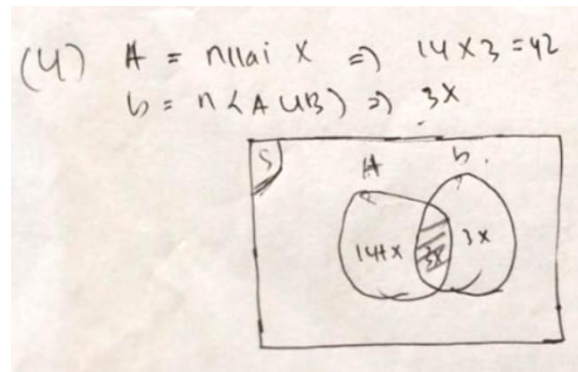 (4) A = nilai x => 14 x 3 = 42
b = n < A U B) => 3x
S
A b.
14+x 3x 3x